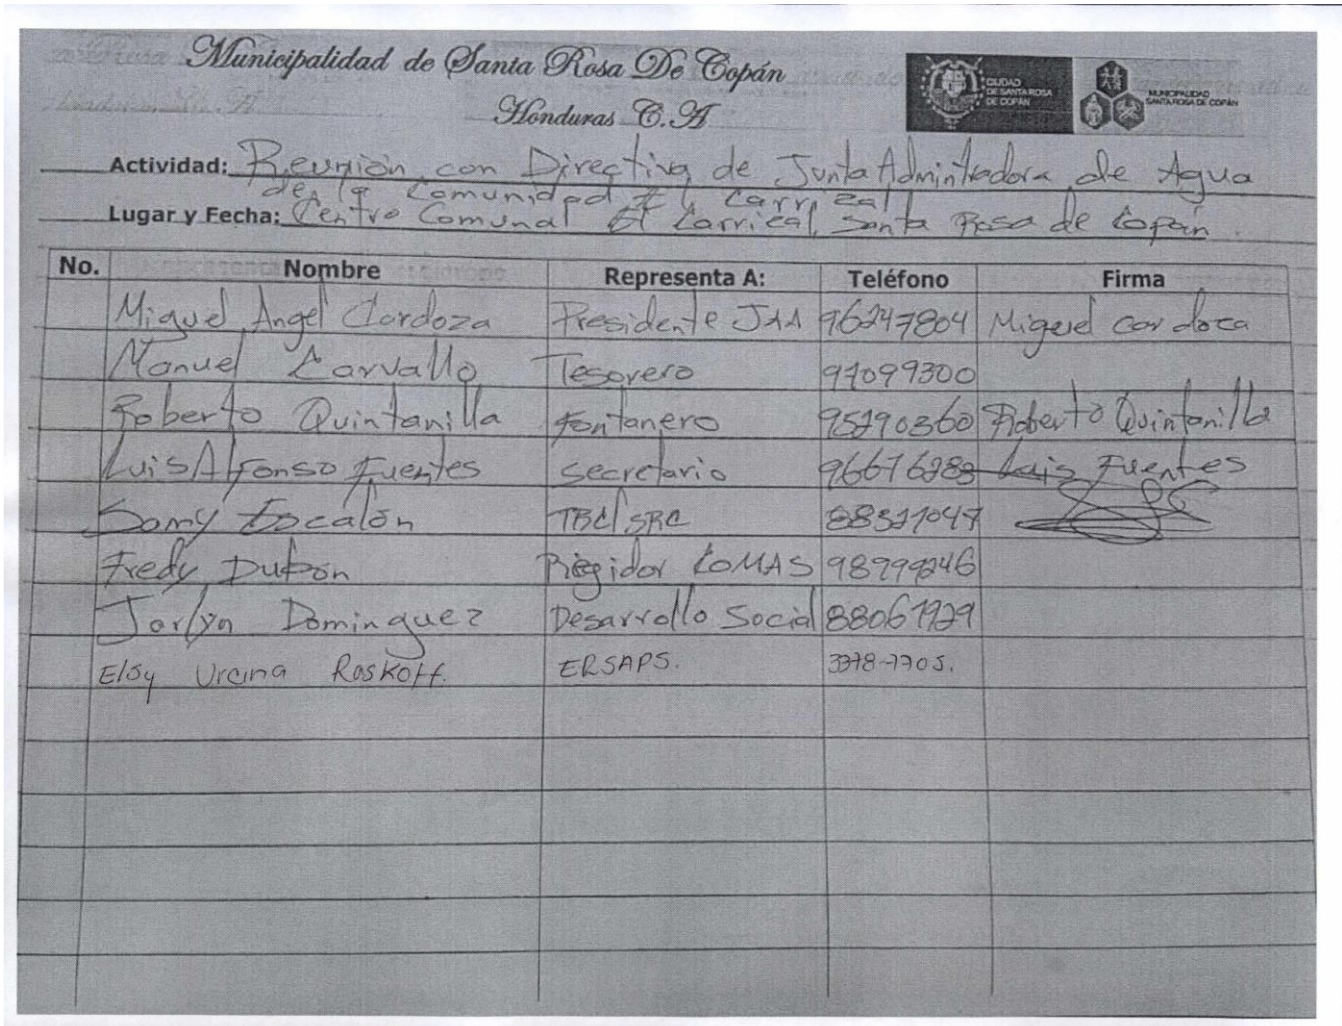 Municipalidad de Santa Rosa De Copán
Honduras C.A
CIUDAD
DE SANTA ROSA
DE COPÁN
MUNICIPALIDAD
SANTA ROSA DE COPÁN
Actividad: Reunión con Directiva de Junta Admintradora de Agua
de la Comunidad El Carrizal
Lugar y Fecha: Centro Comunal El Carrizal, Santa Rosa de Copán.
No. Nombre Representa A: Teléfono Firma
Miguel Angel Cardoza Presidente JAA 96247804 Miguel cardoza
Manuel Carvallo Tesorero 97099300
Roberto Quintanilla Fontanero 95290360 Roberto Quintanilla
Luis Alfonso Fuentes secretario 96676283 Luis Fuentes
Somy Escalón TBC/SRC
Fredy Dubón Regidor COMAS 98999246
Dominguez Desarrollo Social 88061929
Elsy Urcina Roskoff. ERSAPS.